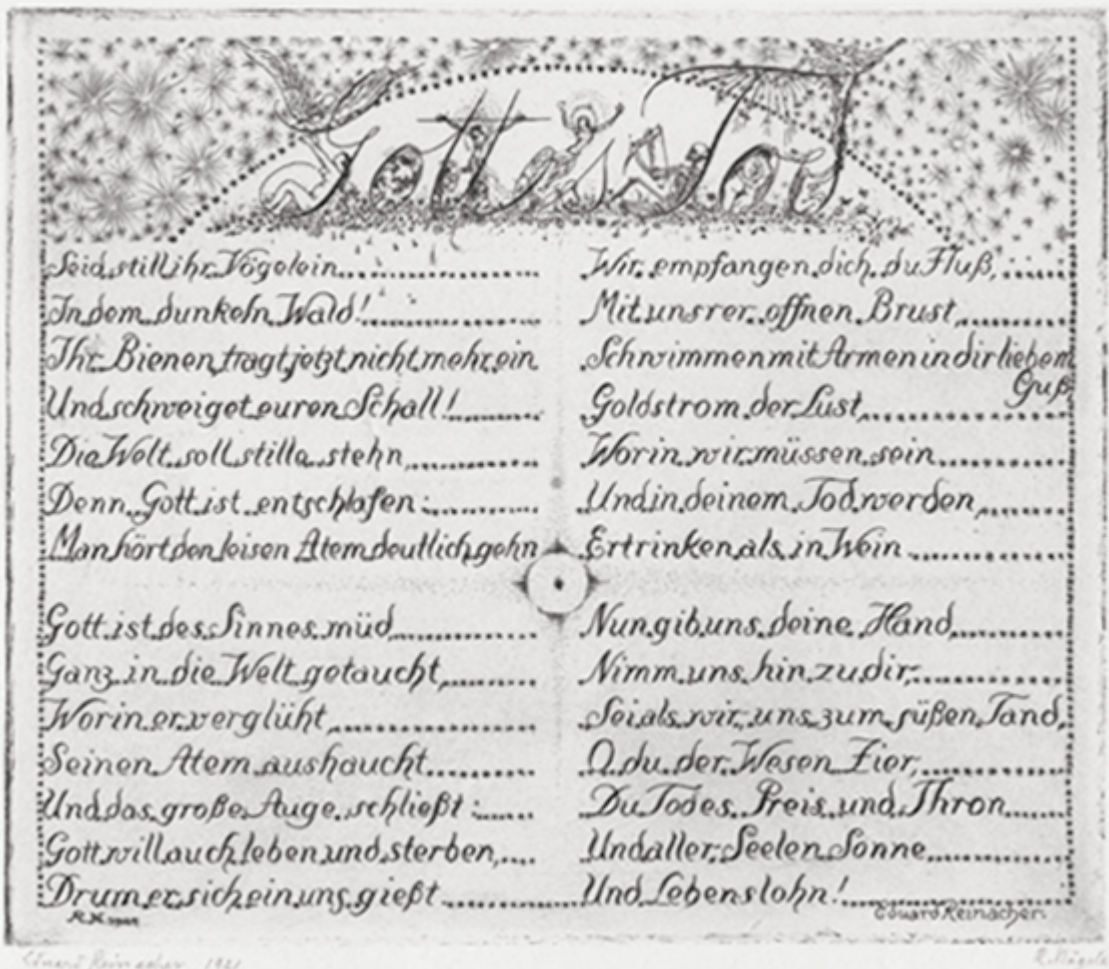 Gottes Tod
Seid still ihr Vögelein
In dem dunkeln Wald!
Ihr Bienen tragt jetzt nicht mehr ein
Und schweiget euren Schall!
Die Welt soll stille stehn,
Denn Gott ist entschlafen:
Man hört den leisen Atem deutlich gehn
Gott ist des Sinnes müd,
Ganz in die Welt getaucht,
Worin er verglüht,
Seinen Atem aushaucht
Und das große Auge schließt:
Gott will auch leben und sterben,
Drum er sich ein uns gießt
Wir empfangen dich, du Fluß,
Mit unsrer offnen Brust,
Schwimmen mit Armen in dir liebem
Guß,
Goldstrom der Lust,
Worin wir müssen sein
Und in deinem Tod werden,
Ertrinken als in Wein
Nun gib uns deine Hand,
Nimm uns hin zu dir,
Sei als wir uns zum süßen Tand,
O du der Wesen Zier,
Du Todes Preis und Thron
Und aller Seelen Sonne
Und Lebenslohn!
Eduard Reinacher.
Eduard Reinacher 1921
R. Nägele